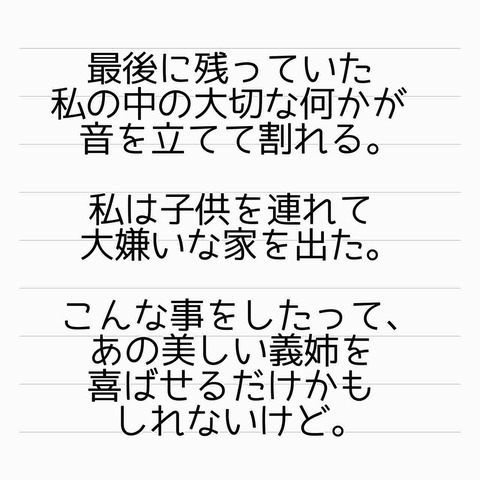 最後に残っていた
私の中の大切な何かが
音を立てて割れる。
私は子供を連れて
大嫌いな家を出た。
こんな事をしたって、
あの美しい義姉を
喜ばせるだけかも
しれないけど。